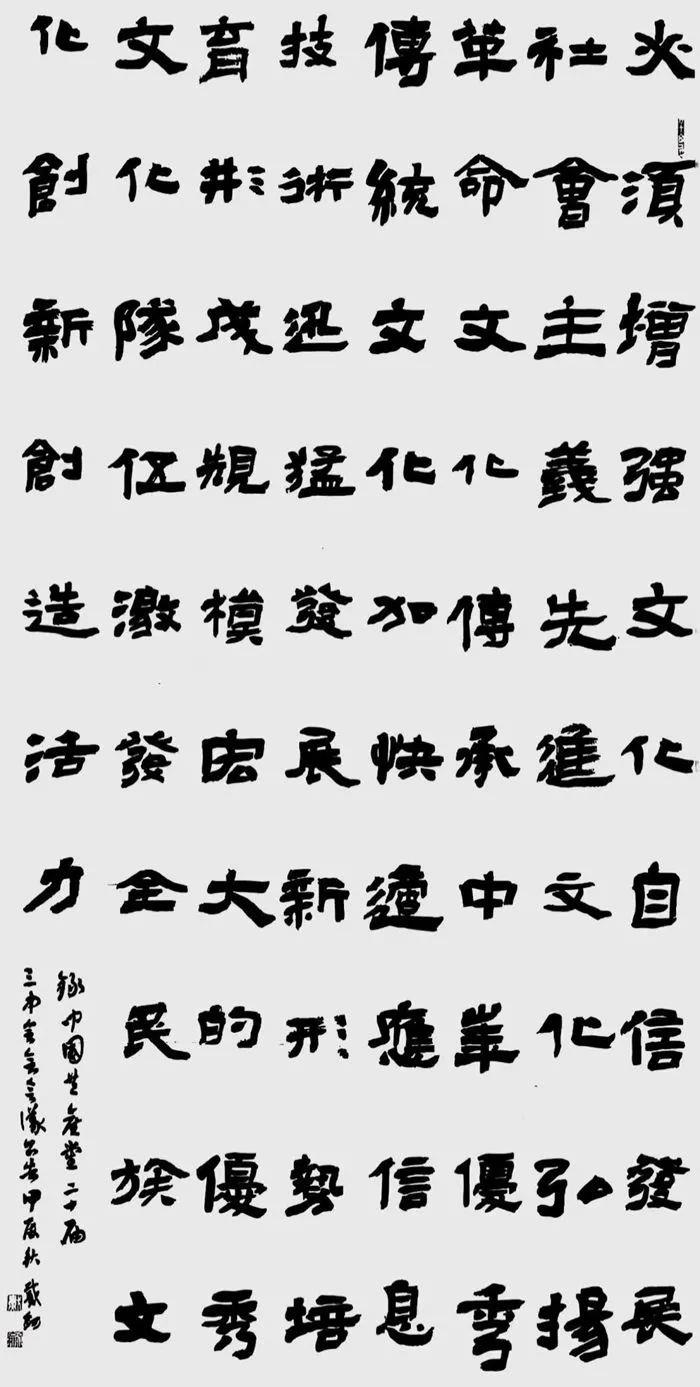 必須增強文化自信發展
社會主義先進文化弘揚
革命文化傳承中華優秀
傳統文化加快適應信息
技術迅猛發展新形勢培
育形成規模宏大的優秀
文化隊伍激發全民族文
化創新創造活力
錄中國共產黨二十屆
三中全會會議公告甲辰秋戴